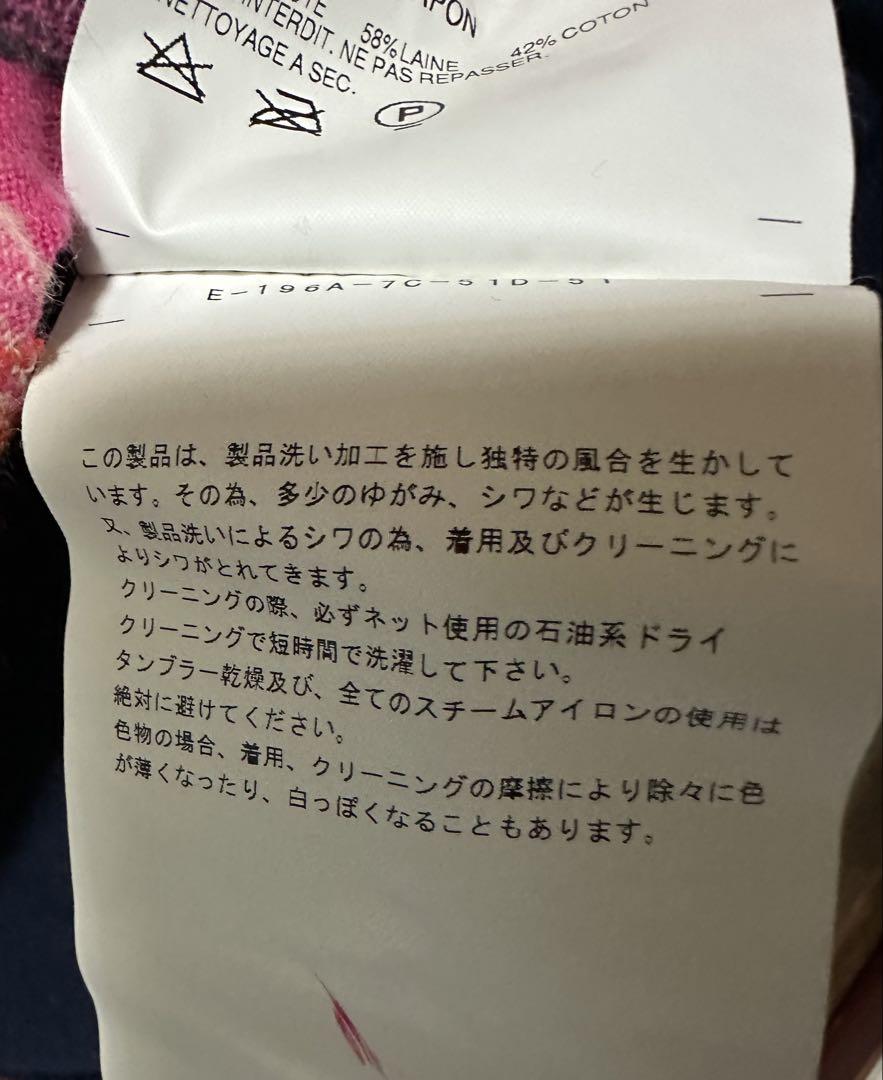 58% LAINE 42% COTON
INTERDIT. NE PAS REPASSER.
NETTOYAGE A SEC.
P
E-196A-7C-51D-51
この製品は、製品洗い加工を施し独特の風合を生かして
います。その為、多少のゆがみ、シワなどが生じます。
又、製品洗いによるシワの為、着用及びクリーニングに
よりシワがとれてきます。
クリーニングの際、必ずネット使用の石油系ドライ
クリーニングで短時間で洗濯して下さい。
タンブラー乾燥及び、全てのスチームアイロンの使用は
絶対に避けてください。
色物の場合、着用、クリーニングの摩擦により除々に色
が薄くなったり、白っぽくなることもあります。